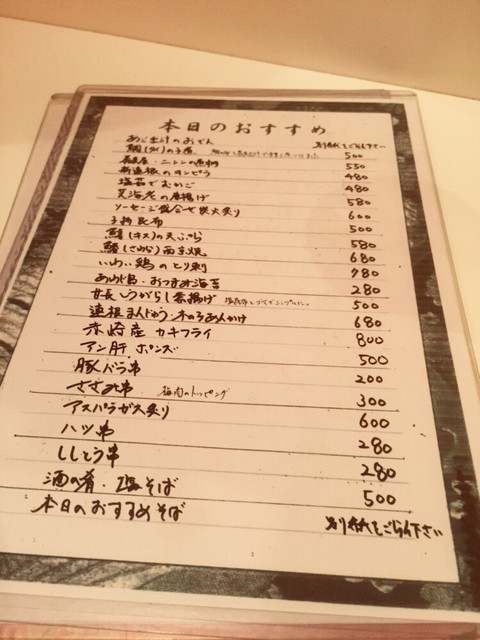 本日のおすすめ
あご出汁のおでん 別紙をご覧下さい
鯛(タイ)の子煮 500
ニシンの 550
新蓮根のキンピラ 480
塩茹でむかご 480
芝海老の唐揚げ 580
ソーセージ盛合せ炭火炙り 600
子持昆布 500
鱚(キス)の天ぷら 580
鰆(さわら)西京焼 680
いわい鶏のとり刺 780
おつまみ海苔 280
甘長しょうがらし素揚げ 500
蓮根まんじゅう・きのこあんかけ 680
赤崎産カキフライ 800
アン肝ポンズ 500
豚バラ串 200
ささみ串 梅肉のトッピング 300
アスパラガス炙り 600
ハツ串 280
ししとう串 280
酒の肴・塩そば 500
本日のおすすめそば 別紙をご覧下さい